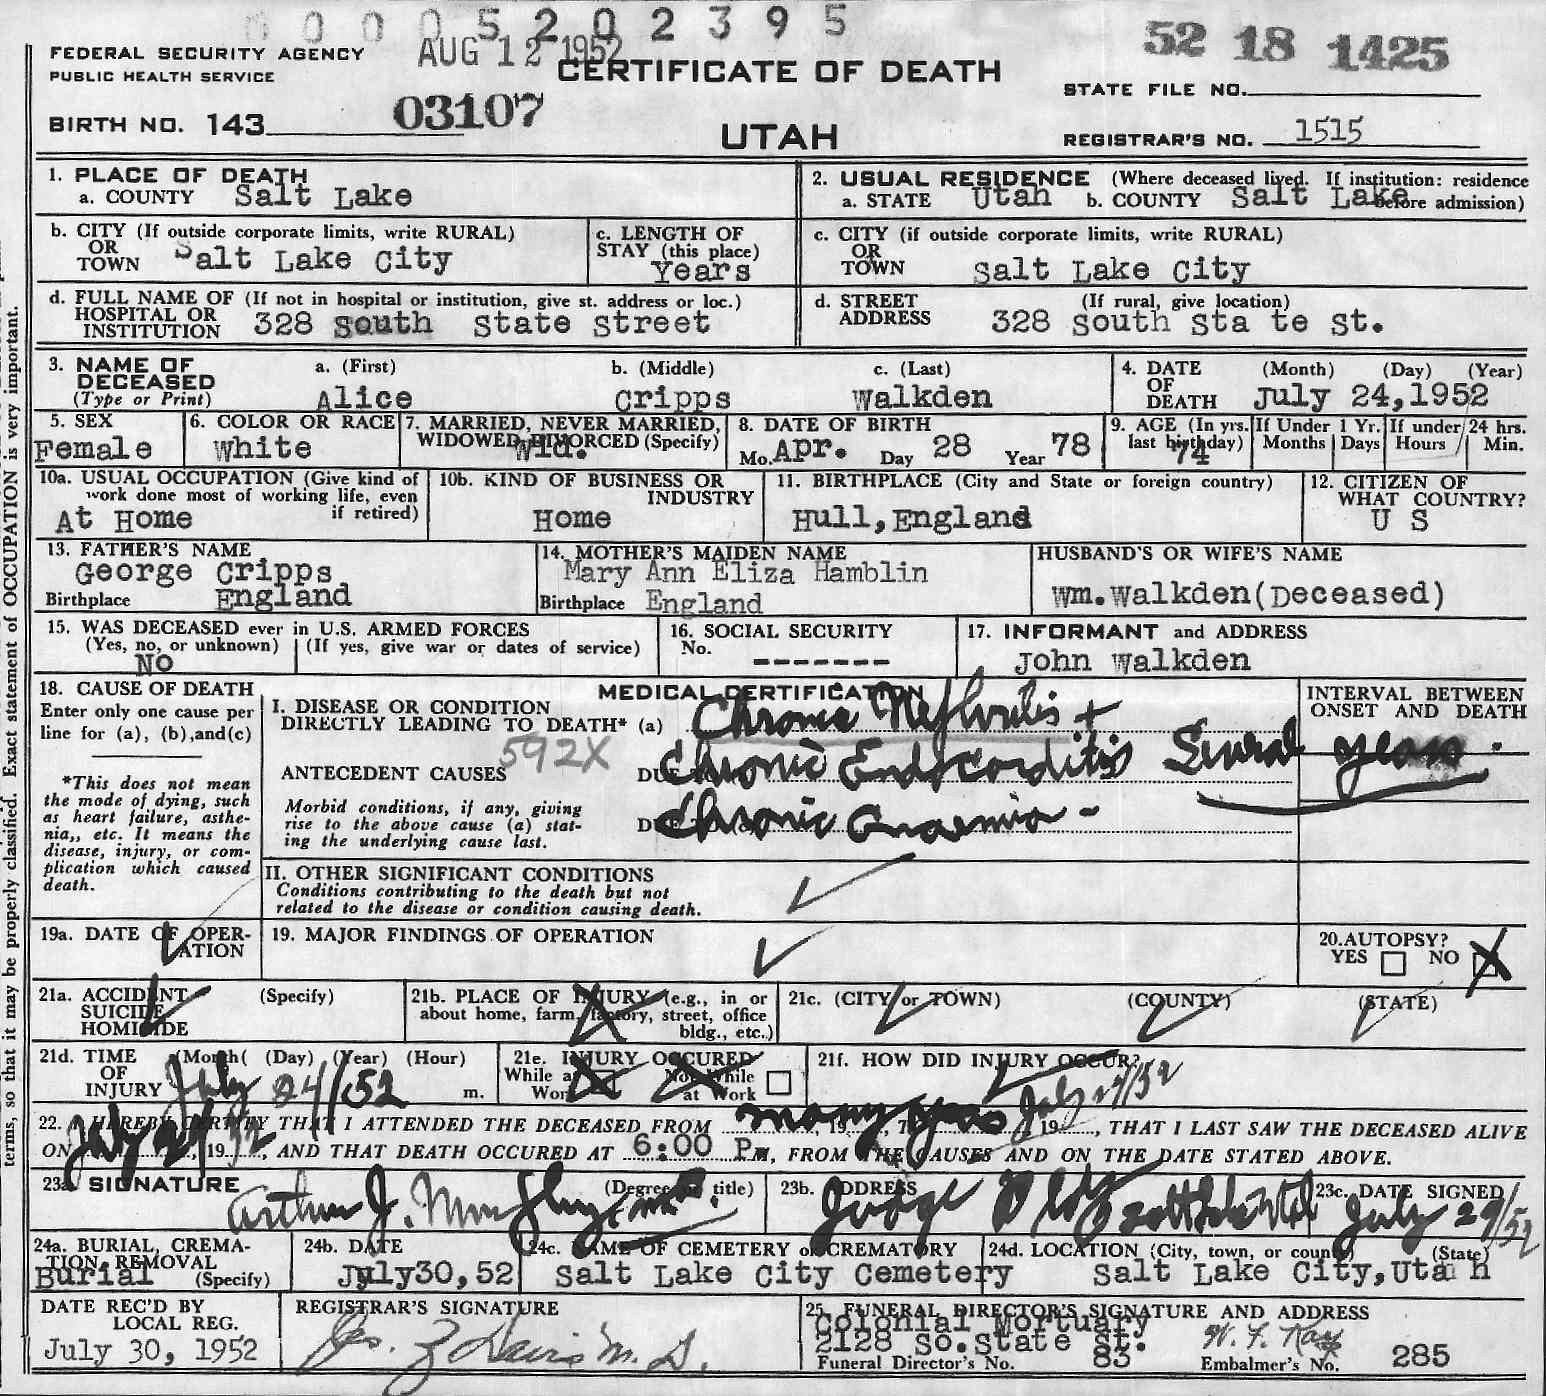 0 0 0 5 2 0 2 3 9 5
FEDERAL SECURITY AGENCY
PUBLIC HEALTH SERVICE
AUG 12 1952
CERTIFICATE OF DEATH
52 18 1425
STATE FILE NO.
BIRTH NO. 143
03107
UTAH
REGISTRAR'S NO. 1515
1. PLACE OF DEATH
a. COUNTY Salt Lake
2. USUAL RESIDENCE (Where deceased lived. If institution: residence before admission)
a. STATE Utah b. COUNTY Salt Lake
b. CITY (If outside corporate limits, write RURAL)
OR
TOWN Salt Lake City
c. LENGTH OF
STAY (this place)
Years
c. CITY (if outside corporate limits, write RURAL)
OR
TOWN Salt Lake City
d. FULL NAME OF (If not in hospital or institution, give st. address or loc.)
HOSPITAL OR
INSTITUTION 328 South State Street
d. STREET (If rural, give location)
ADDRESS 328 South Sta te St.
3. NAME OF
DECEASED
(Type or Print)
a. (First) b. (Middle) c. (Last)
Alice Cripps Walkden
4. DATE (Month) (Day) (Year)
OF
DEATH July 24,1952
5. SEX
Female
6. COLOR OR RACE
White
7. MARRIED, NEVER MARRIED,
WIDOWED, DIVORCED (Specify)
Wid.
8. DATE OF BIRTH
Mo. Apr. Day 28 Year 78
9. AGE (In yrs.
last birthday)
74
If Under 1 Yr.
Months Days
If under 24 hrs.
Hours Min.
10a. USUAL OCCUPATION (Give kind of
work done most of working life, even
if retired)
At Home
10b. KIND OF BUSINESS OR
INDUSTRY
Home
11. BIRTHPLACE (City and State or foreign country)
Hull, England
12. CITIZEN OF
WHAT COUNTRY?
U S
13. FATHER'S NAME
George Cripps
Birthplace England
14. MOTHER'S MAIDEN NAME
Mary Ann Eliza Hamblin
Birthplace England
HUSBAND'S OR WIFE'S NAME
Wm.Walkden(Deceased)
15. WAS DECEASED ever in U.S. ARMED FORCES
(Yes, no, or unknown) (If yes, give war or dates of service)
NO
16. SOCIAL SECURITY
No. -------
17. INFORMANT and ADDRESS
John Walkden
18. CAUSE OF DEATH
Enter only one cause per
line for (a), (b),and(c)
*This does not mean
the mode of dying, such
as heart failure, asthe-
nia,, etc. It means the
disease, injury, or com-
plication which caused
death.
MEDICAL CERTIFICATION
I. DISEASE OR CONDITION
DIRECTLY LEADING TO DEATH* (a) Chronic Nephritis +
592X
ANTECEDENT CAUSES DUE TO Chronic Endocarditis Several years.
Morbid conditions, if any, giving
rise to the above cause (a) stat-
ing the underlying cause last.
DUE TO Chronic Anaemia -
INTERVAL BETWEEN
ONSET AND DEATH
II. OTHER SIGNIFICANT CONDITIONS
Conditions contributing to the death but not
related to the disease or condition causing death.
19a. DATE OF OPER-
ATION
19. MAJOR FINDINGS OF OPERATION
20. AUTOPSY?
YES NO
21a. ACCIDENT (Specify)
SUICIDE
HOMICIDE
21b. PLACE OF INJURY (e.g., in or
about home, farm, factory, street, office
bldg., etc.)
21c. (CITY or TOWN) (COUNTY) (STATE)
21d. TIME (Month( (Day) (Year) (Hour)
OF
INJURY July 24/52 m.
21e. INJURY OCCURED
While at Work Not While at Work
21f. HOW DID INJURY OCCUR?
22. I HEREBY CERTIFY THAT I ATTENDED THE DECEASED FROM many years, 19, TO July 24/52 19, THAT I LAST SAW THE DECEASED ALIVE
ON July 24, 1952, AND THAT DEATH OCCURED AT 6:00 P.M, FROM THE CAUSES AND ON THE DATE STATED ABOVE.
23a. SIGNATURE (Degree or title)
Arthur J. M.D.
23b. ADDRESS
Judge Bldg Salt Lake
23c. DATE SIGNED
July 29/52
24a. BURIAL, CREMA-
TION, REMOVAL
Burial (Specify)
24b. DATE
July30,52
24c. NAME OF CEMETERY or CREMATORY
Salt Lake City Cemetery
24d. LOCATION (City, town, or county) (State)
Salt Lake City,Utah
DATE REC'D BY
LOCAL REG.
July 30, 1952
REGISTRAR'S SIGNATURE
Jas. Z Davis M. D.
25. FUNERAL DIRECTOR'S SIGNATURE AND ADDRESS
Colonial Mortuary
2128 So.State St. W. F. Ray
Funeral Director's No. 83 Embalmer's No. 285
terms, so that it may be properly classified. Exact statement of OCCUPATION is very important.